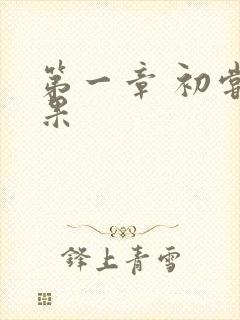 第一章 初尝
果
锋上青雪